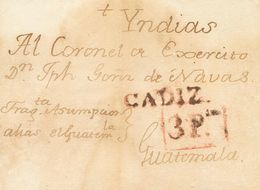 + Yndias
Al Coronel de Exercito
Dn. Jph Gonz de Navas.
Fragta Asumpcion
alias el Guatemla
CADIZ.
3 Rs.
Guatemala.